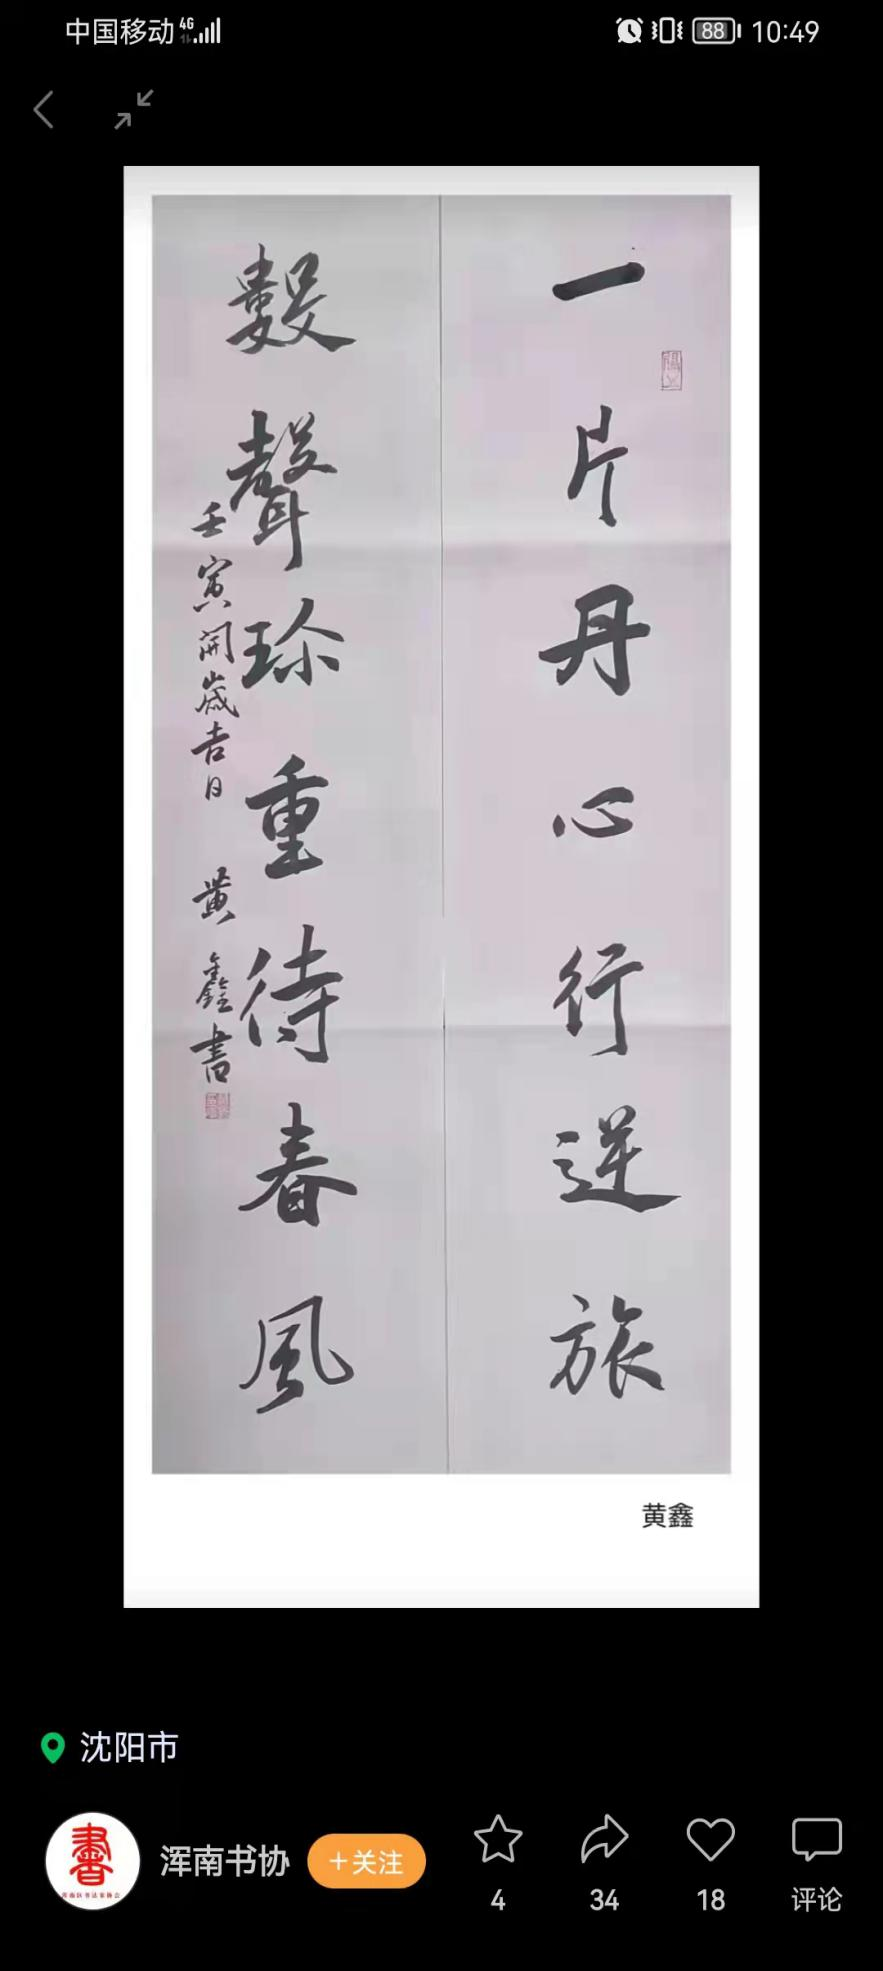 中国移动 4G 88 10:49
一片丹心行逆旅
數聲珍重待春風
壬寅開歲吉日 黄鑫書
黄鑫
沈阳市
浑南书协 +关注
4 34 18 评论